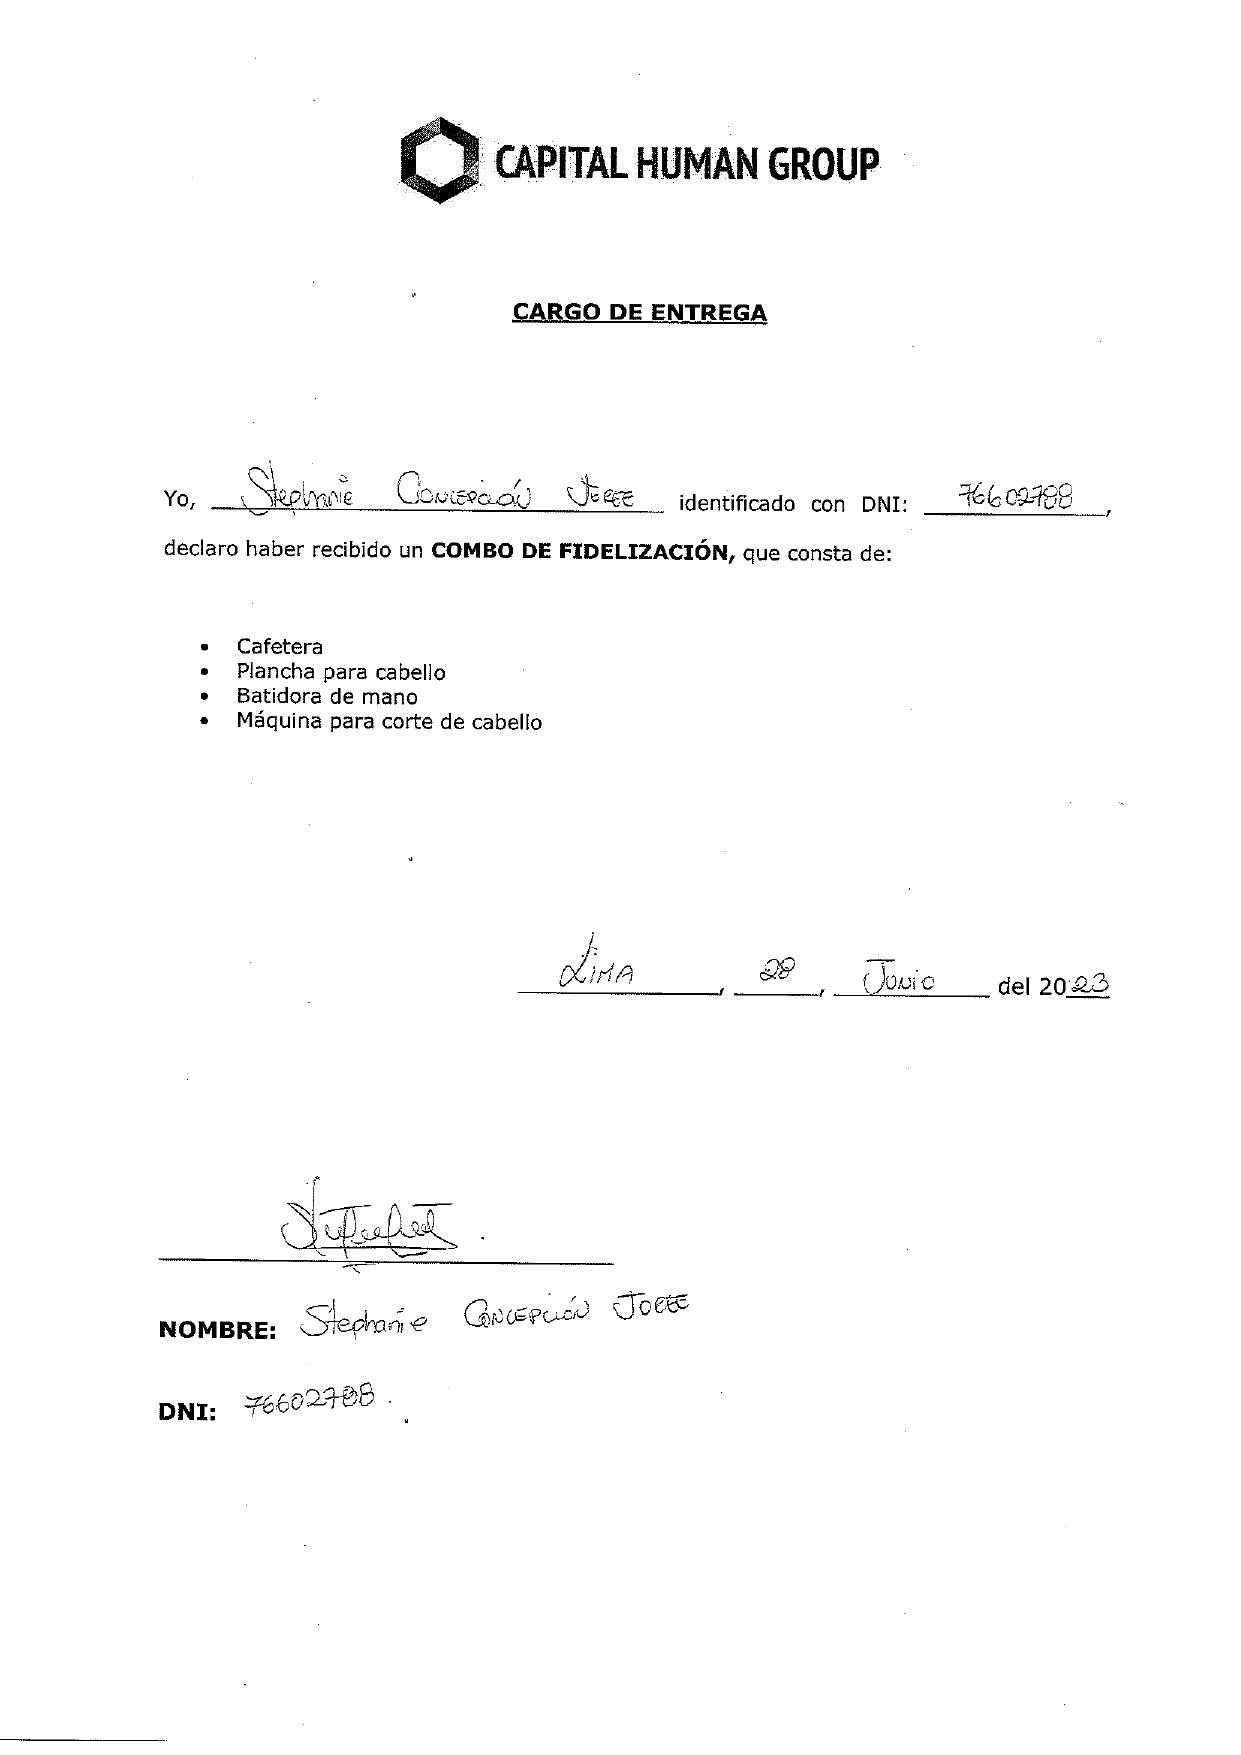 CAPITAL HUMAN GROUP
CARGO DE ENTREGA
Yo, Stephanie Concepción Jorge identificado con DNI: 76602788,
declaro haber recibido un COMBO DE FIDELIZACIÓN, que consta de:
• Cafetera
• Plancha para cabello
• Batidora de mano
• Máquina para corte de cabello
LIMA, 28, Junio del 2023
NOMBRE: Stephanie Concepción
DNI: 76602788.